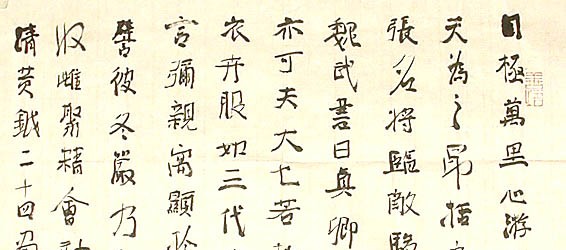 目極萬里心游
天為之括
張名將臨敵
魏武書曰真卿
亦可夫大七若
衣卉服如三代
言彌親寓顯
譬彼冬嚴乃
收雌聚精會
清黄鉞二十四